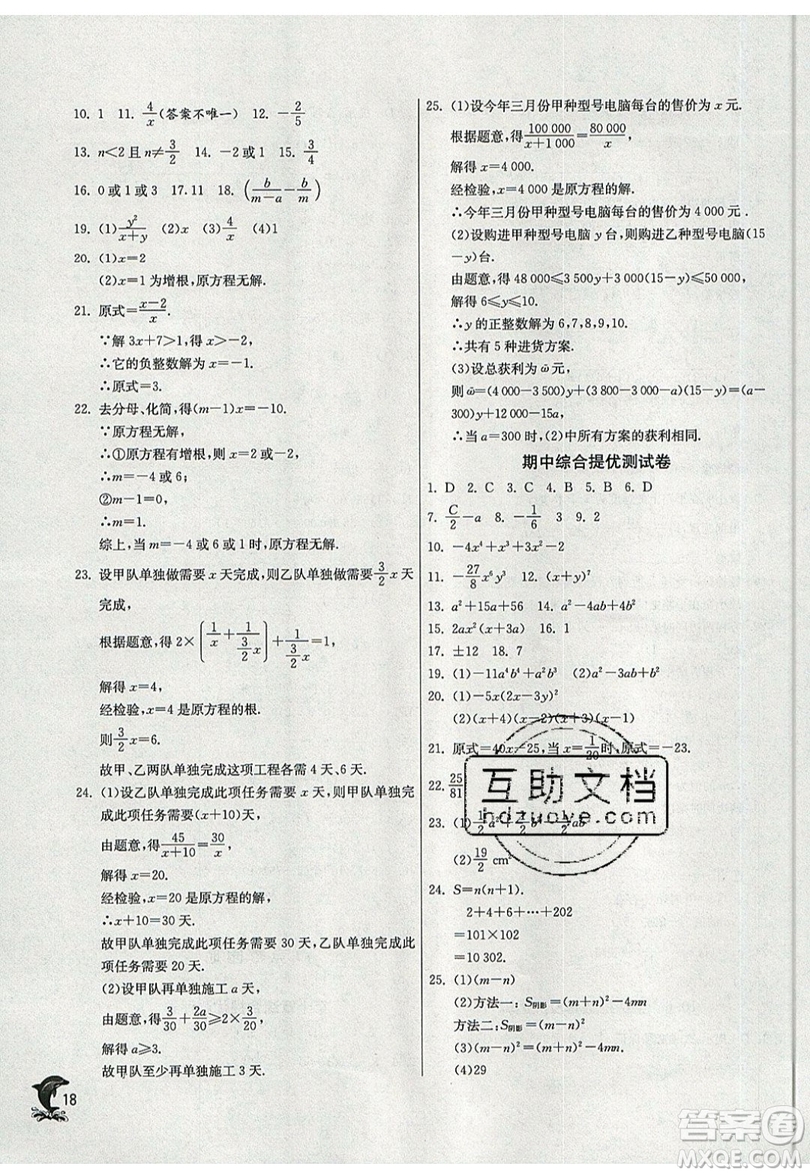 10. 1　11. 4/x(答案不唯一)　12. −2/5
13. n<2且n≠3/2　14. −2　15. 3/4
16. 0或1或3　17.11　18. (b/(m−a)−b/m)
19. (1)y²/(x+y)　(2)x　(3)4/x　(4)1
20. (1)x=2
(2)x=1为增根,原方程无解.
21. 原式=(x−2)/x.
∵解3x+7>1,得x>−2.
∴它的负整数解为−1.
∴原式=3.
22. 去分母、化简,得(m−1)x=−10.
∵原方程无解,
∴①原方程有增根,则x=2或−2.
∴m=−4或6;
②m−1=0,
∴m=1.
综上,当m=−4或6或1时,原方程无解.
23. 设甲队单独做需要x天完成,则乙队单独做需要3/2 x天
完成,
根据题意,得2×(1/x+1/(3/2 x))+1/(3/2 x)=1,
解得x=4,
经检验,x=4是原方程的根.
则3/2 x=6.
故甲、乙两队单独完成这项工程各需4天、6天.
24. (1)设乙队单独完成此项任务需要x天,则甲队单独完
成此项任务需要(x+10)天,
由题意,得45/(x+10)=30/x,
解得x=20.
经检验,x=20是原方程的解,
∴x+10=30天.
故甲队单独完成此项任务需要30天,乙队单独完成此项
任务需要20天.
(2)设甲队再单独施工a天,
由题意,得3/30+2a/30≥2×3/20,
解得a≥3.
故甲队至少再单独施工3天.
18
25. (1)设今年三月份甲种型号电脑每台的售价为x元.
根据题意,得100 000/(x+1 000)=80 000/x,
解得x=4 000.
经检验,x=4 000是原方程的解.
∴今年三月份甲种型号电脑每台的售价为4 000元.
(2)设购进甲种型号电脑y台,则购进乙种型号电脑(15
−y)台.
由题意,得48 000≤3 500y+3 000(15−y)≤50 000,
解得6≤y≤10.
∴y的正整数解为6,7,8,9,10.
∴共有5种进货方案.
(3)设总获利为ω̄元.
则ω̄=(4 000−3 500)y+(3 800−3 000−a)(15−y)=(a−
300)y+12 000−15a,
∴当a=300时,(2)中所有方案的获利相同.
期中综合提优测试卷
1. D　2. C　3. C　4. B　5. B　6. D
7. C/2−a　8. −1/6　3　9. 2
10. −4x⁴+4x³−x²
11. −27/8 x⁶y³　12. (x+y)⁷
13. a²+15a+56　14. a²−4ab+4b²
15. 2ax²(x+3a)　16. 1
17. ±12　18. 7
19. (1)−11a⁴b⁴+a²b³　(2)a²−3ab+b²
20. (1)−5x(x−2y)²
(2)(x+4)(x−2)(x+3)(x−1)
21. 原式=40x−25,当x=1/20时,原式=−23.
22. 25/81
23. (1)1/2 a²+1/2 b²−1/2 ab
(2)19/2 cm²
24. S=n(n+1).
2+4+6+…+202
=101×102
=10 302.
25. (1)(m−n)
(2)方法一:S阴影=(m+n)²−4mn
方法二:S阴影=(m−n)²
(3)(m−n)²=(m+n)²−4mn
(4)29
互助文档
hdzuoye.com
答案圈
MXQE.COM